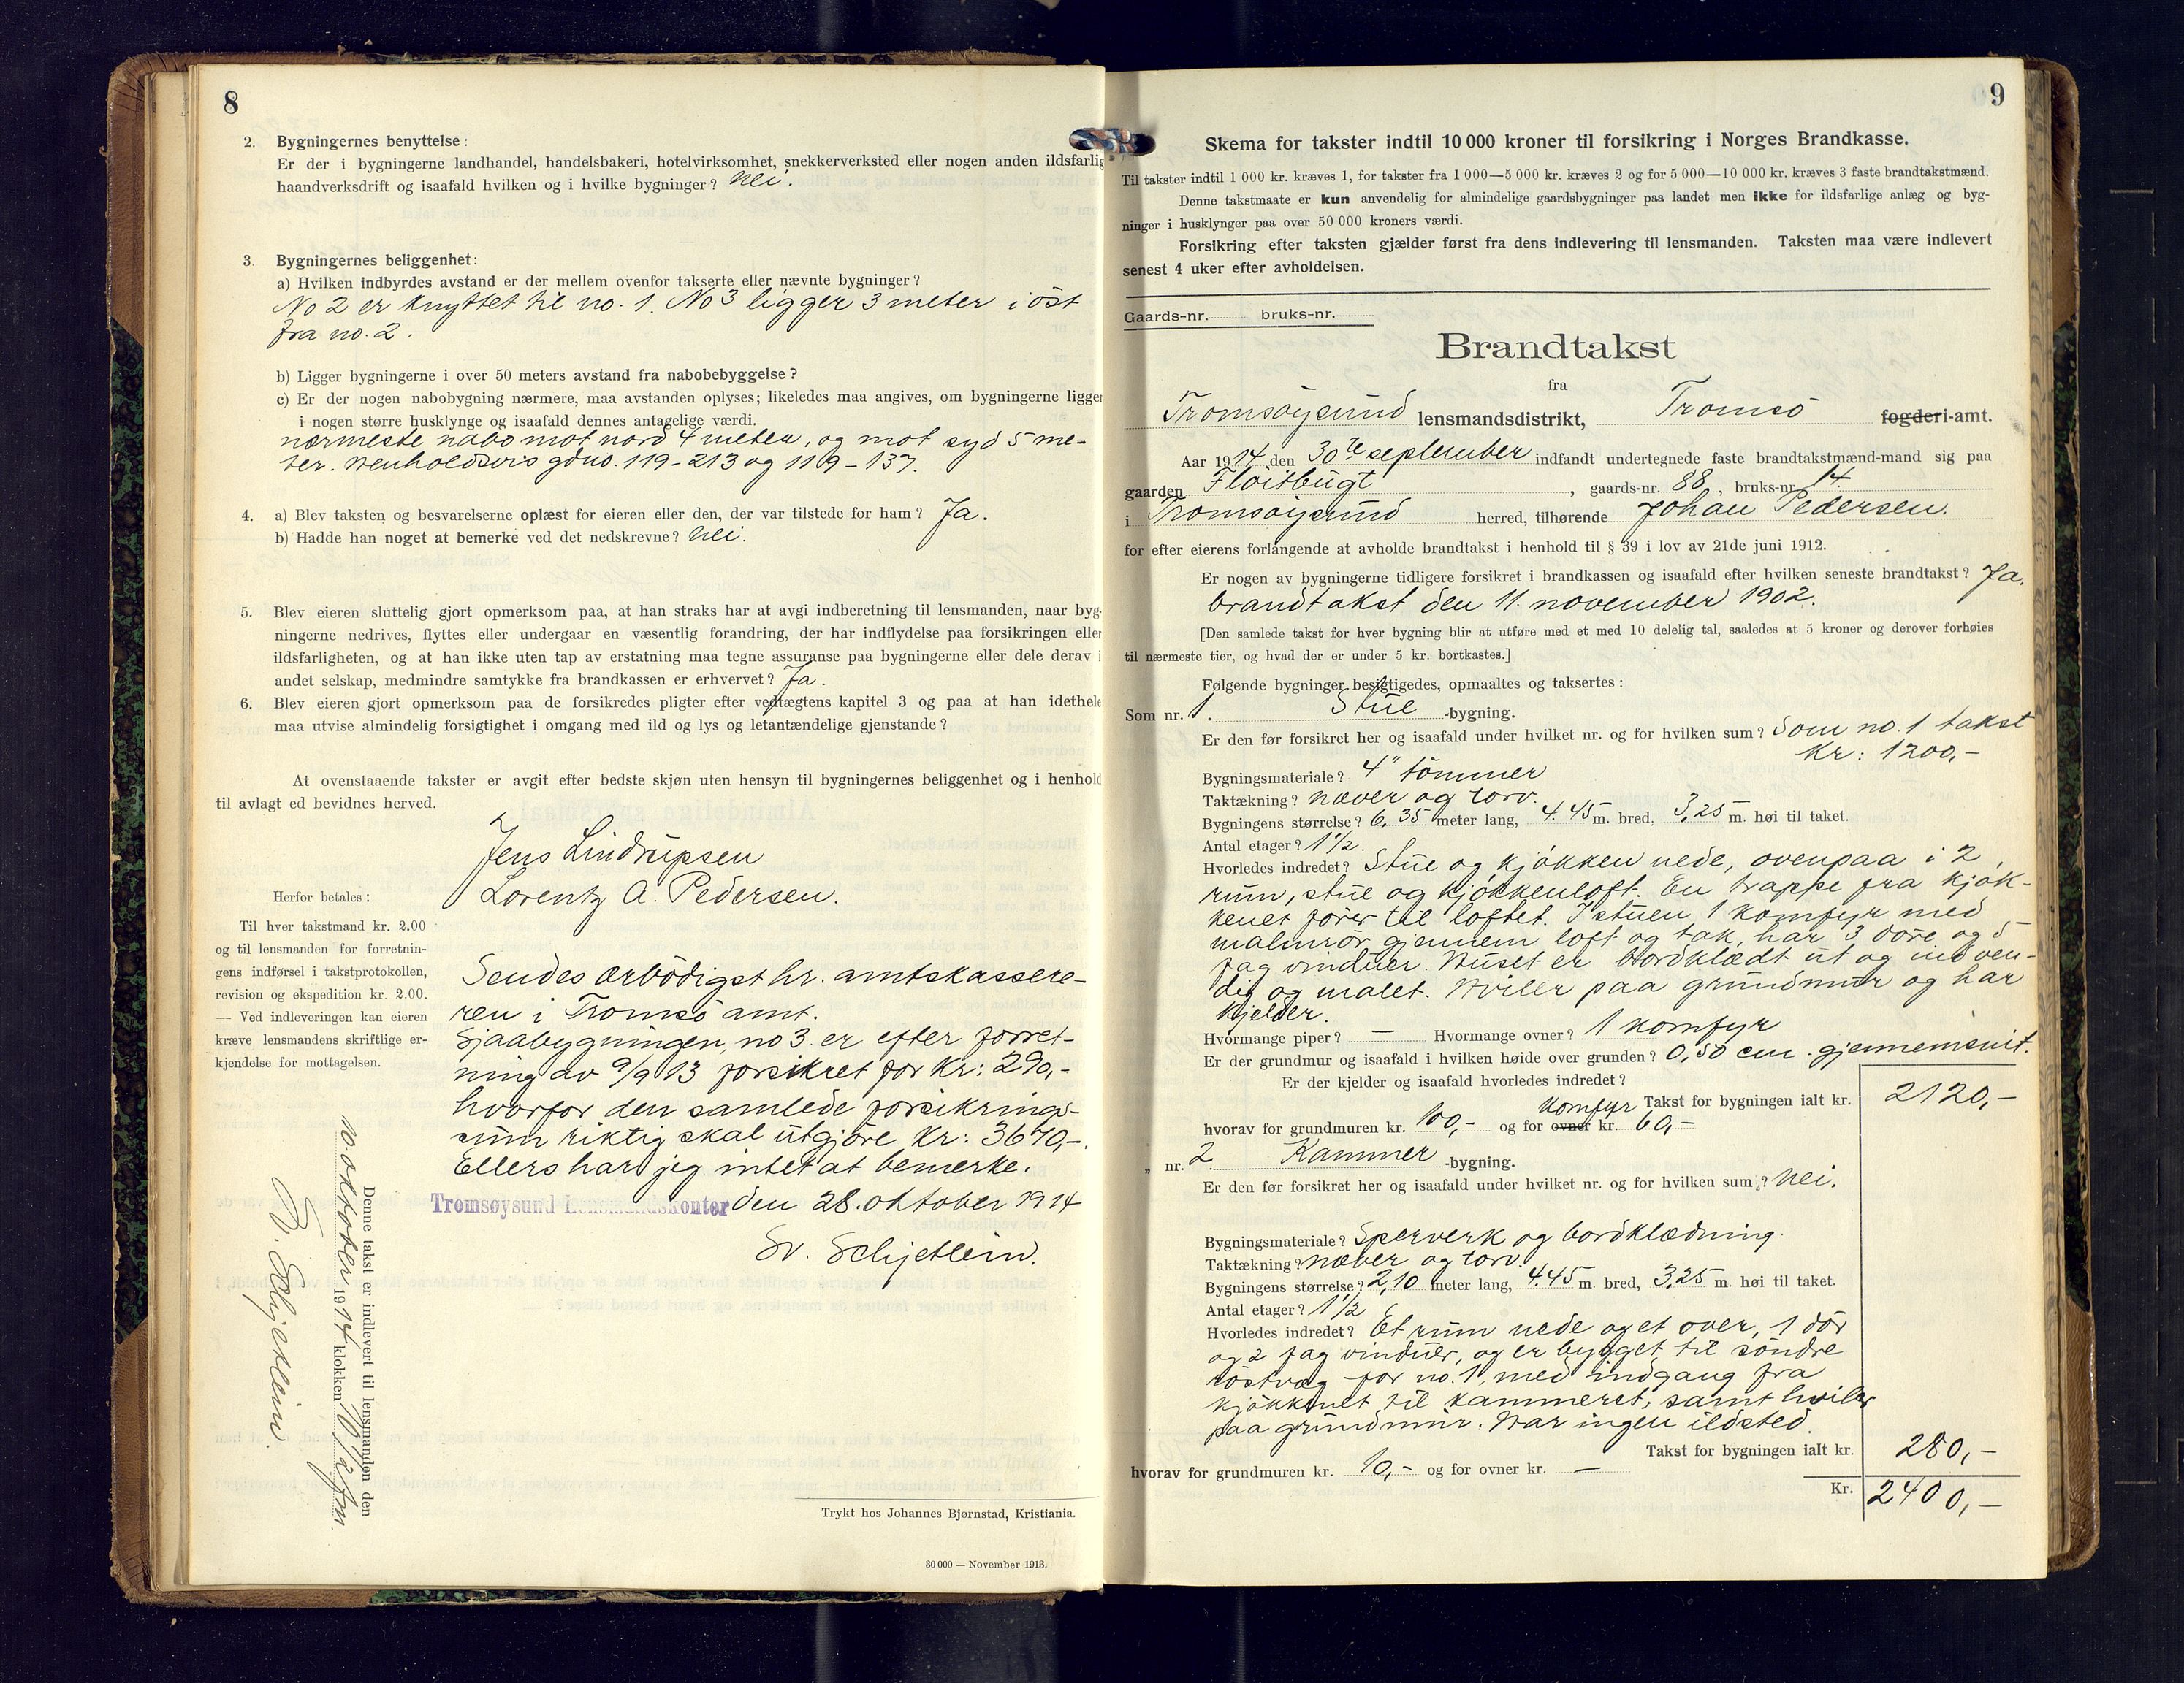 8
2. Bygningernes benyttelse:
Er der i bygningerne landhandel, handelsbakeri, hotelvirksomhet, snekkerverksted eller nogen anden ildsfarlig
haandverksdrift og isaafald hvilken og i hvilke bygninger? Nei.
3. Bygningernes beliggenhet:
a) Hvilken indbyrdes avstand er der mellem ovenfor takserte eller nævnte bygninger?
No 2 er knyttet til no. 1. No 3 ligger 3 meter i öst
fra no. 2.
b) Ligger bygningerne i over 50 meters avstand fra nabobebyggelse?
c) Er der nogen nabobygning nærmere, maa avstanden oplyses; likeledes maa angives, om bygningerne ligger
i nogen større husklynge og isaafald dennes antagelige værdi.
nærmeste nabo mot nord 4 meter, og mot syd 5 me-
ter. Henholdsvis gdno. 119-213 og 119-137.
4. a) Blev taksten og besvarelserne oplæst for eieren eller den, der var tilstede for ham? Ja.
b) Hadde han noget at bemerke ved det nedskrevne? Nei.
5. Blev eieren sluttelig gjort opmerksom paa, at han straks har at avgi indberetning til lensmanden, naar byg-
ningerne nedrives, flyttes eller undergaar en væsentlig forandring, der har indflydelse paa forsikringen eller
ildsfarligheten, og at han ikke uten tap av erstatning maa tegne assuranse paa bygningerne eller dele derav i
andet selskap, medmindre samtykke fra brandkassen er erhvervet? Ja.
6. Blev eieren gjort opmerksom paa de forsikredes pligter efter vedtægtens kapitel 3 og paa at han idethele
maa utvise almindelig forsigtighet i omgang med ild og lys og letantændelige gjenstande?
At ovenstaaende takster er avgit efter bedste skjøn uten hensyn til bygningernes beliggenhet og i henhold
til avlagt ed bevidnes herved.
Jens Lindrupsen
Lorentz A. Pedersen.
Herfor betales:
Til hver takstmand kr. 2.00
og til lensmanden for forretnin-
gens indførsel i takstprotokollen,
revision og ekspedition kr. 2.00.
— Ved indleveringen kan eieren
kræve lensmandens skriftlige er-
kjendelse for mottagelsen.
Sendes ærbödigst hr. amtskassere-
ren i Tromsö amt.
Sjaabygningen, no 3 er efter forret-
ning av 9/9 13 forsikret for Kr: 290,-
hvorfor den samlede forsikrings-
sum riktig skal utgjöre Kr: 3670,-.
Ellers har jeg intet at bemerke.
Tromsøysund Lensmandskontor den 28. oktober 1914
Sv. Schjetlein.
Denne takst er indlevert til lensmanden den
10 oktober 1914 klokken 10 1/2 fm.
Sv. Schjetlein.
Trykt hos Johannes Bjørnstad, Kristiania.
30 000 — November 1913.
9
Skema for takster indtil 10 000 kroner til forsikring i Norges Brandkasse.
Til takster indtil 1 000 kr. kræves 1, for takster fra 1 000—5 000 kr. kræves 2 og for 5 000—10 000 kr. kræves 3 faste brandtakstmænd.
Denne takstmaate er kun anvendelig for almindelige gaardsbygninger paa landet men ikke for ildsfarlige anlæg og byg-
ninger i husklynger paa over 50 000 kroners værdi.
Forsikring efter taksten gjælder først fra dens indlevering til lensmanden. Taksten maa være indlevert
senest 4 uker efter avholdelsen.
Gaards-nr. bruks-nr.
Brandtakst
fra
Tromsöysund lensmandsdistrikt, Tromsö fogderi-amt.
Aar 1914 den 30te september indfandt undertegnede faste brandtakstmænd-mand sig paa
gaarden Flöitbugt, gaards-nr. 88, bruks-nr. 14
i Tromsöysund herred, tilhørende Johan Pedersen.
for efter eierens forlangende at avholde brandtakst i henhold til § 39 i lov av 21de juni 1912.
Er nogen av bygningerne tidligere forsikret i brandkassen og isaafald efter hvilken seneste brandtakst? Ja.
brandtakst den 11. november 1902.
[Den samlede takst for hver bygning blir at utføre med et med 10 delelig tal, saaledes at 5 kroner og derover forhøies
til nærmeste tier, og hvad der er under 5 kr. bortkastes.]
Følgende bygninger besigtigedes, opmaaltes og taksertes:
Som nr. 1. Stue -bygning.
Er den før forsikret her og isaafald under hvilket nr. og for hvilken sum? Som no. 1 takst
Kr: 1200,-
Bygningsmateriale? 4" tömmer
Taktækning? næver og torv.
Bygningens størrelse? 6,35 meter lang, 4.45 m. bred, 3,25 m. høi til taket.
Antal etager? 1 1/2.
Hvorledes indredet? Stue og kjökken nede, ovenpaa i 2
rum, stue og kjökkenloft. En trappe fra kjök-
kenet förer til loftet. I stuen 1 komfyr med
malmrör gjennem loft og tak, har 3 döre og 5
fag vinduer. Huset er bordklædt ut og indven-
dig og malet. Hviler paa grundmur og har
kjelder.
Hvormange piper? — Hvormange ovner? 1 komfyr
Er der grundmur og isaafald i hvilken høide over grunden? 0,50 cm. gjennemsnit.
Er der kjelder og isaafald hvorledes indredet?
Takst for bygningen ialt kr. 2120,-
hvorav for grundmuren kr. 100,- og for ovner komfyr kr. 60,-
„ nr. 2. Kammer -bygning.
Er den før forsikret her og isaafald under hvilket nr. og for hvilken sum? Nei.
Bygningsmateriale? Sperverk og bordklædning.
Taktækning? næver og torv.
Bygningens størrelse? 2,10 meter lang, 4.45 m. bred, 3,25 m. høi til taket.
Antal etager? 1 1/2
Hvorledes indredet? Et rum nede og et over, 1 dör
og 2 fag vinduer, og er bygget til söndre
röstvæg for no. 1, med indgang fra
kjökkenet til kammeret, samt hviler
paa grundmur. Har ingen ildsted.
Takst for bygningen ialt kr. 280,-
hvorav for grundmuren kr. 10,- og for ovner kr. —
Kr. 2400,-